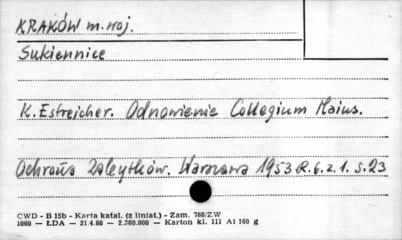 KRAKÓW m. woj.
Sukiennice
K. Estreicher. Odnowienie Collegium Maius.
Ochrona Zabytków. Warszawa 1953 R. 6. z. 1. S. 23
CWD - B 15b - Karta katal. (z liniat.) - Zam. 788/ZW
1060 — ŁDA — 21.4.60 — 2.760.000 — Karton kl. III A1 160 g